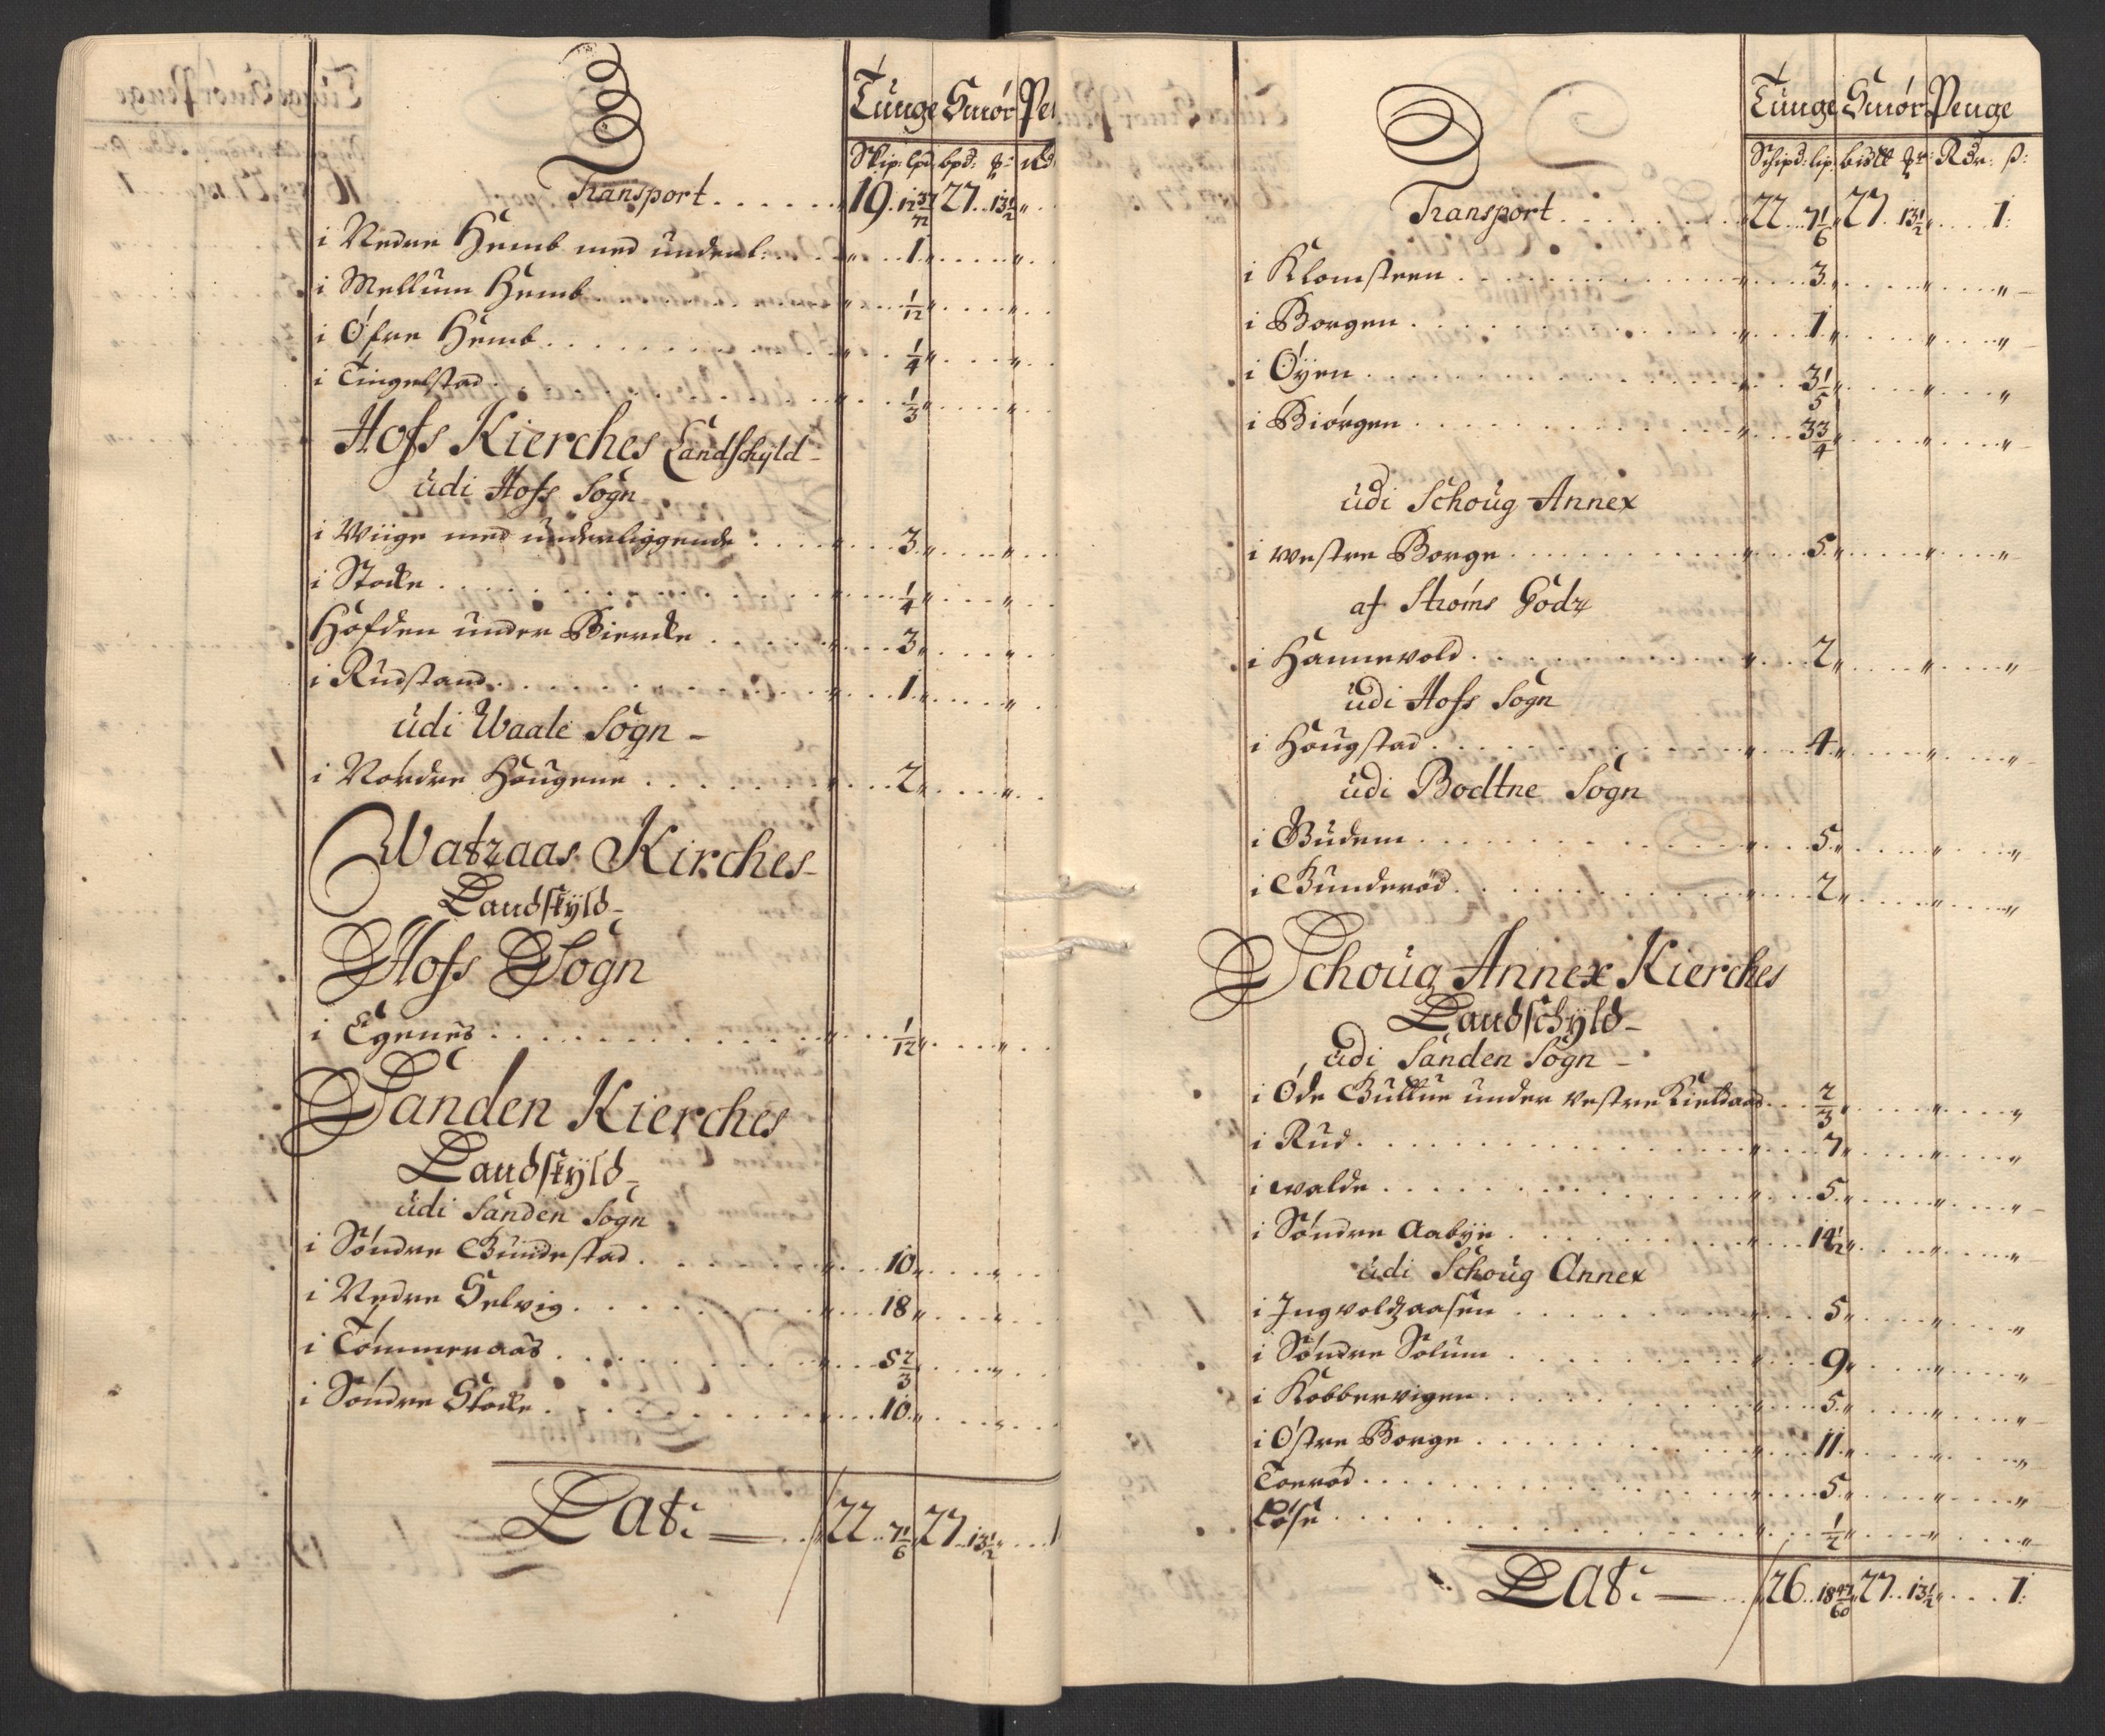 Tünge Smör Pe
Skip: lpd: bpd: Rd
Transport . . . . . . 19. 12 37/72 27. 13 1/2 "
i Nedre Hemb med underl: . . . 1 "
i Mellum Hemb . . . 1/12 "
i Öfre Hemb . . . 1/4 "
i Tingelstad . . . 1/3 "
Hofs Kierches Landschyld
üdi Hofs Sogn
i Wiige med underliggende . . . 3 "
i Stocke . . . 1/4 "
Höfden under Biercke . . . 3 "
i Rüdstand . . . 1 "
üdi Waale Sogn
i Nordre Hougene . . . 2 "
Watzaas Kirches
Landskyld
Hofs Sogn
i Egenes . . . 1/12 "
Sanden Kierches
Landskyld
üdi Sanden Sogn
i Söndre Bündestad . . . 10 "
i Nedre Selvig . . . 18 "
i Tömmeraas . . . 5 2/3 "
i Söndre Stocke . . . 10 "
Lat: — 22. 7 1/6 27. 13 1/2 . . . 1
Tünge Smör Penge
Schipd: lip: Rdr: ß:
Transport . . . 22. 7 1/6 27. 13 1/2 . . . 1:
i Klomsteen . . . 3 "
i Borgen . . . 1 "
i Öÿen . . . 3 1/5 "
i Biörgen . . . 3 3/4 "
üdi Schoüg Annex
i westre Borge . . . 5 "
af Ströms Godz
i Hannevold . . . 2 "
üdi Hofs Sogn
i Hougstad . . . 4 "
üdi Bodtne Sogn
i Büdem . . . 5 "
i Bünderöd . . . 2 "
Schoüg Annex Kierches
Landschÿld
üdi Sanden Sogn
i Öde Bultue under vestre Kieldaas . . . 2/3 "
i Rud . . . 7 "
i walde . . . 5 "
i Söndre Aabÿe . . . 14 1/2 "
üdi Schoüg Annex
i Ingvoldzaasen . . . 5 "
i Söndre Solum . . . 9 "
i Kobbervigen . . . 5 "
i Östre Borge . . . 11 "
Toeröd . . . 5 "
Löse . . . 1/2 "
Lat: — 26. 18 47/60 27. 13 1/2 . . . 1: